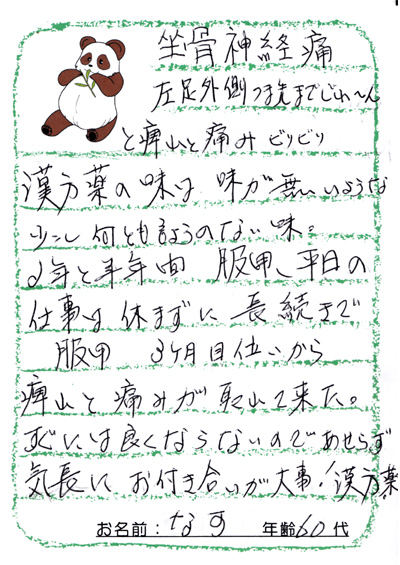 坐骨神経痛
左足外側つま先までじわ〜ん
と痺れと痛み ビリビリ
漢方薬の味は 味が無いような
少し何とも言ようのない味。
2年と半年間 服用、平日の
仕事は休まずに 長続きで
服用 3ヶ月目位いから
痺れと痛みが取れて来た。
すぐには良くならないのであせらず
気長に お付き合いが大事!漢方薬
お名前:なす 年齢60代